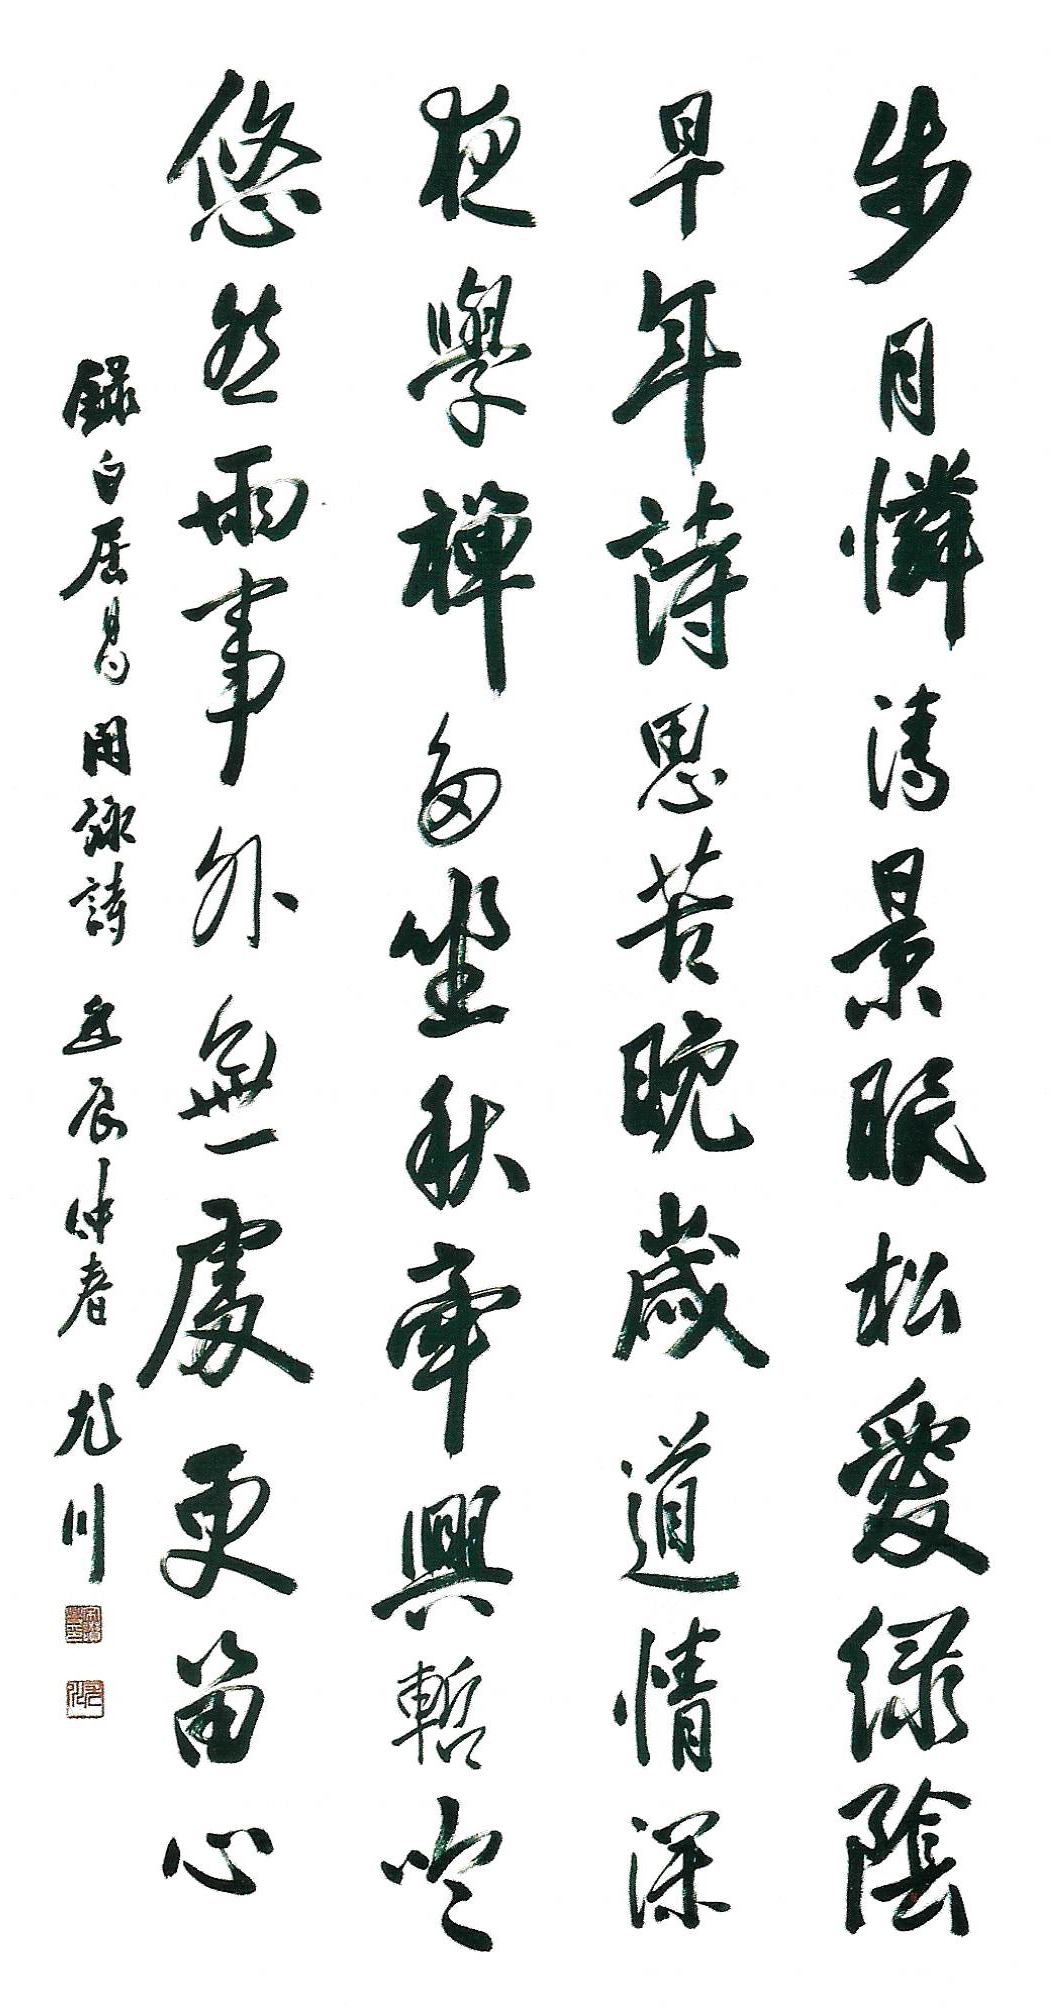 步月憐清景眠松愛綠陰
早年詩思苦晚歲道情深
夜學禪多坐秋牽興暫吟
悠然兩事外無處更留心
錄白居易閒詠詩 辰仲春 尤川